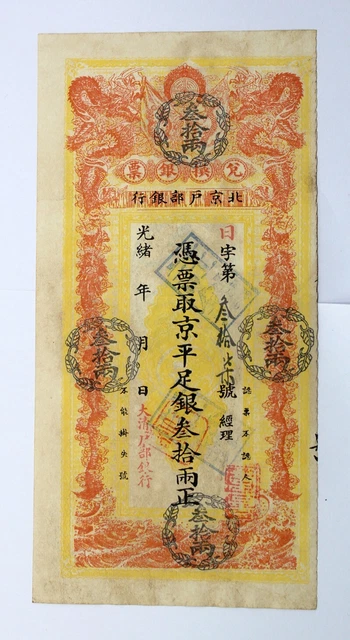 叁拾兩
兌換銀票
北京戶部銀行
認票不認人
日字第叁拾柒號 經理
憑票取京平足銀叁拾兩正
光緒 年 月 日
大清户部銀行
不能掛失號
叁拾兩
叁拾兩
叁拾兩